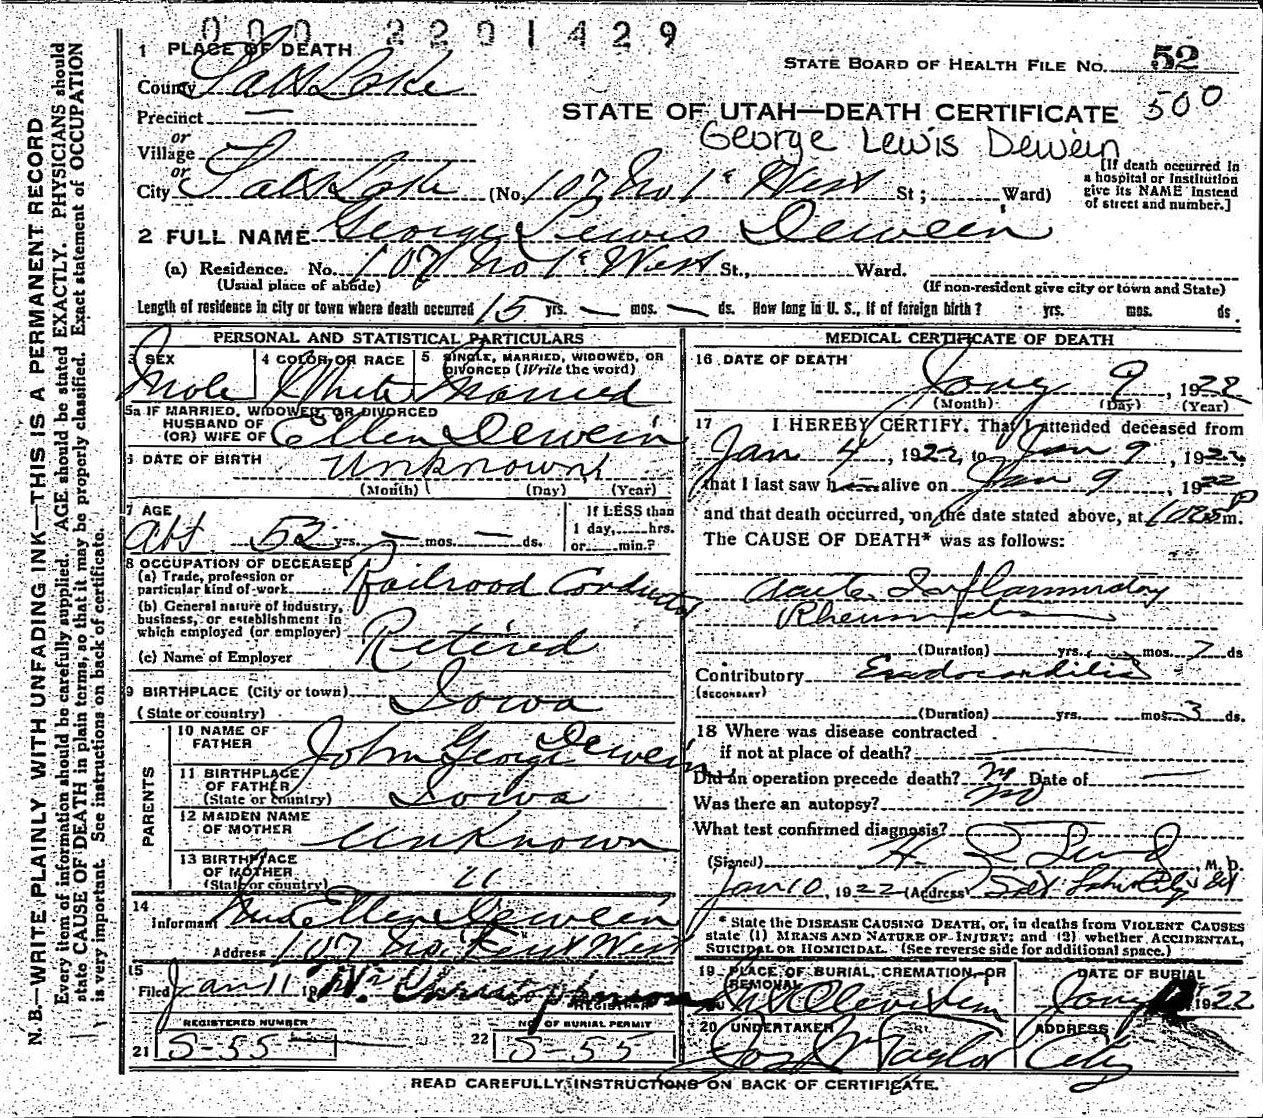 000 2201429
1 PLACE OF DEATH
STATE BOARD OF HEALTH FILE NO. 52
County Salt Lake
500
Precinct —
STATE OF UTAH—DEATH CERTIFICATE
George Lewis Dewein
or
Village
or
City Salt Lake (No. 107 No 1st West St ; Ward)
[If death occurred in
a hospital or institution
give its NAME instead
of street and number.]
2 FULL NAME George Lewis Dewein
(a) Residence. No. 107 No 1st West St., Ward.
(Usual place of abode) (If non-resident give city or town and State)
Length of residence in city or town where death occurred 15 yrs. — mos. — ds. How long in U. S., if of foreign birth? yrs. mos. ds.
PERSONAL AND STATISTICAL PARTICULARS
3 SEX 4 COLOR OR RACE 5 SINGLE, MARRIED, WIDOWED, OR
DIVORCED (Write the word)
Male White Married
5a IF MARRIED, WIDOWED, OR DIVORCED
HUSBAND OF
(OR) WIFE OF Ellen Dewein
6 DATE OF BIRTH Unknown
(Month) (Day) (Year)
7 AGE
Abt 52 yrs. — mos. — ds.
If LESS than
1 day, hrs.
or min.?
8 OCCUPATION OF DECEASED
(a) Trade, profession or
particular kind of work Railroad Conductor
(b) General nature of industry,
business, or establishment in
which employed (or employer) Retired
(c) Name of Employer
9 BIRTHPLACE (City or town)
(State or country) Iowa
PARENTS
10 NAME OF
FATHER John George Dewein
11 BIRTHPLACE
OF FATHER
(State or country) Iowa
12 MAIDEN NAME
OF MOTHER Unknown
13 BIRTHPLACE
OF MOTHER
(State or country) "
14
Informant Mrs Ellen Dewein
Address 107 No. First West
15
Filed Jan 11 19
REGISTRAR
REGISTERED NUMBER
21 S-55
NO. OF BURIAL PERMIT
22 S-55
MEDICAL CERTIFICATE OF DEATH
16 DATE OF DEATH
Jany 9, 1922
(Month) (Day) (Year)
17 I HEREBY CERTIFY. That I attended deceased from
Jan 4, 1922, to Jan 9, 1922
that I last saw h alive on Jan 9, 1922
and that death occurred, on the date stated above, at P m.
The CAUSE OF DEATH* was as follows:
Acute Inflammatory
Rheumatism
(Duration) yrs. mos. 7 ds
Contributory Endocarditis
(SECONDARY)
(Duration) yrs. mos. 3 ds.
18 Where was disease contracted
if not at place of death?
Did an operation precede death? no Date of —
Was there an autopsy? no
What test confirmed diagnosis?
(Signed) H. Lund, M. D.
Jan 10, 1922 (Address) Salt Lake City Ut
* State the DISEASE CAUSING DEATH, or, in deaths from VIOLENT CAUSES
state (1) MEANS AND NATURE OF INJURY; and (2) whether ACCIDENTAL,
SUICIDAL OR HOMICIDAL. (See reverse side for additional space.)
19 PLACE OF BURIAL, CREMATION, OR
REMOVAL
Mt Olivet Cem
DATE OF BURIAL
Jany 1922
20 UNDERTAKER
Jos Wm Taylor
ADDRESS
City
READ CAREFULLY INSTRUCTIONS ON BACK OF CERTIFICATE.
N. B.—WRITE PLAINLY WITH UNFADING INK—THIS IS A PERMANENT RECORD
Every item of information should be carefully supplied. AGE should be stated EXACTLY. PHYSICIANS should
state CAUSE OF DEATH in plain terms, so that it may be properly classified. Exact statement of OCCUPATION
is very important. See instructions on back of certificate.